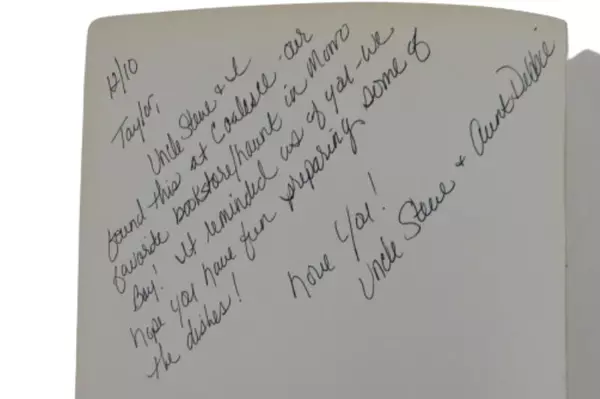 12/10
Taylor,
Uncle Steve & I
found this at Coalesce - our
favorite bookstore/haunt in Morro
Bay! It reminded us of you - we
hope you have fun preparing some of
the dishes!
Love You!
Uncle Steve & Aunt Debbie